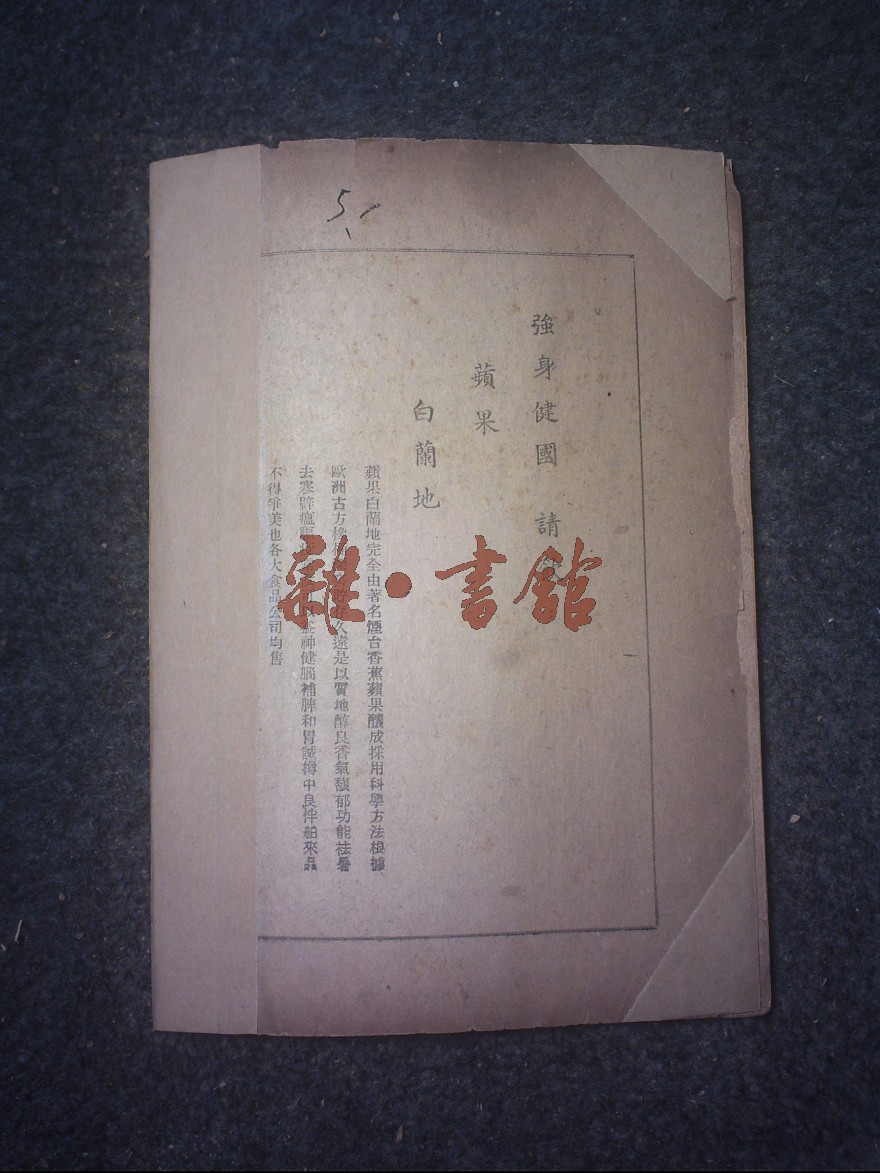 5
強身健國 請飲
蘋果
白蘭地
蘋果白蘭地完全由著名煙台香蕉蘋果釀成採用科學方法根據
歐洲古方久遠是以質地醇良香氣馥郁功能祛暑
去寒辟瘟益神健腦補脾和胃誠樽中良伴舶來品
不得爭美也各大食品公司均售
雜·書館